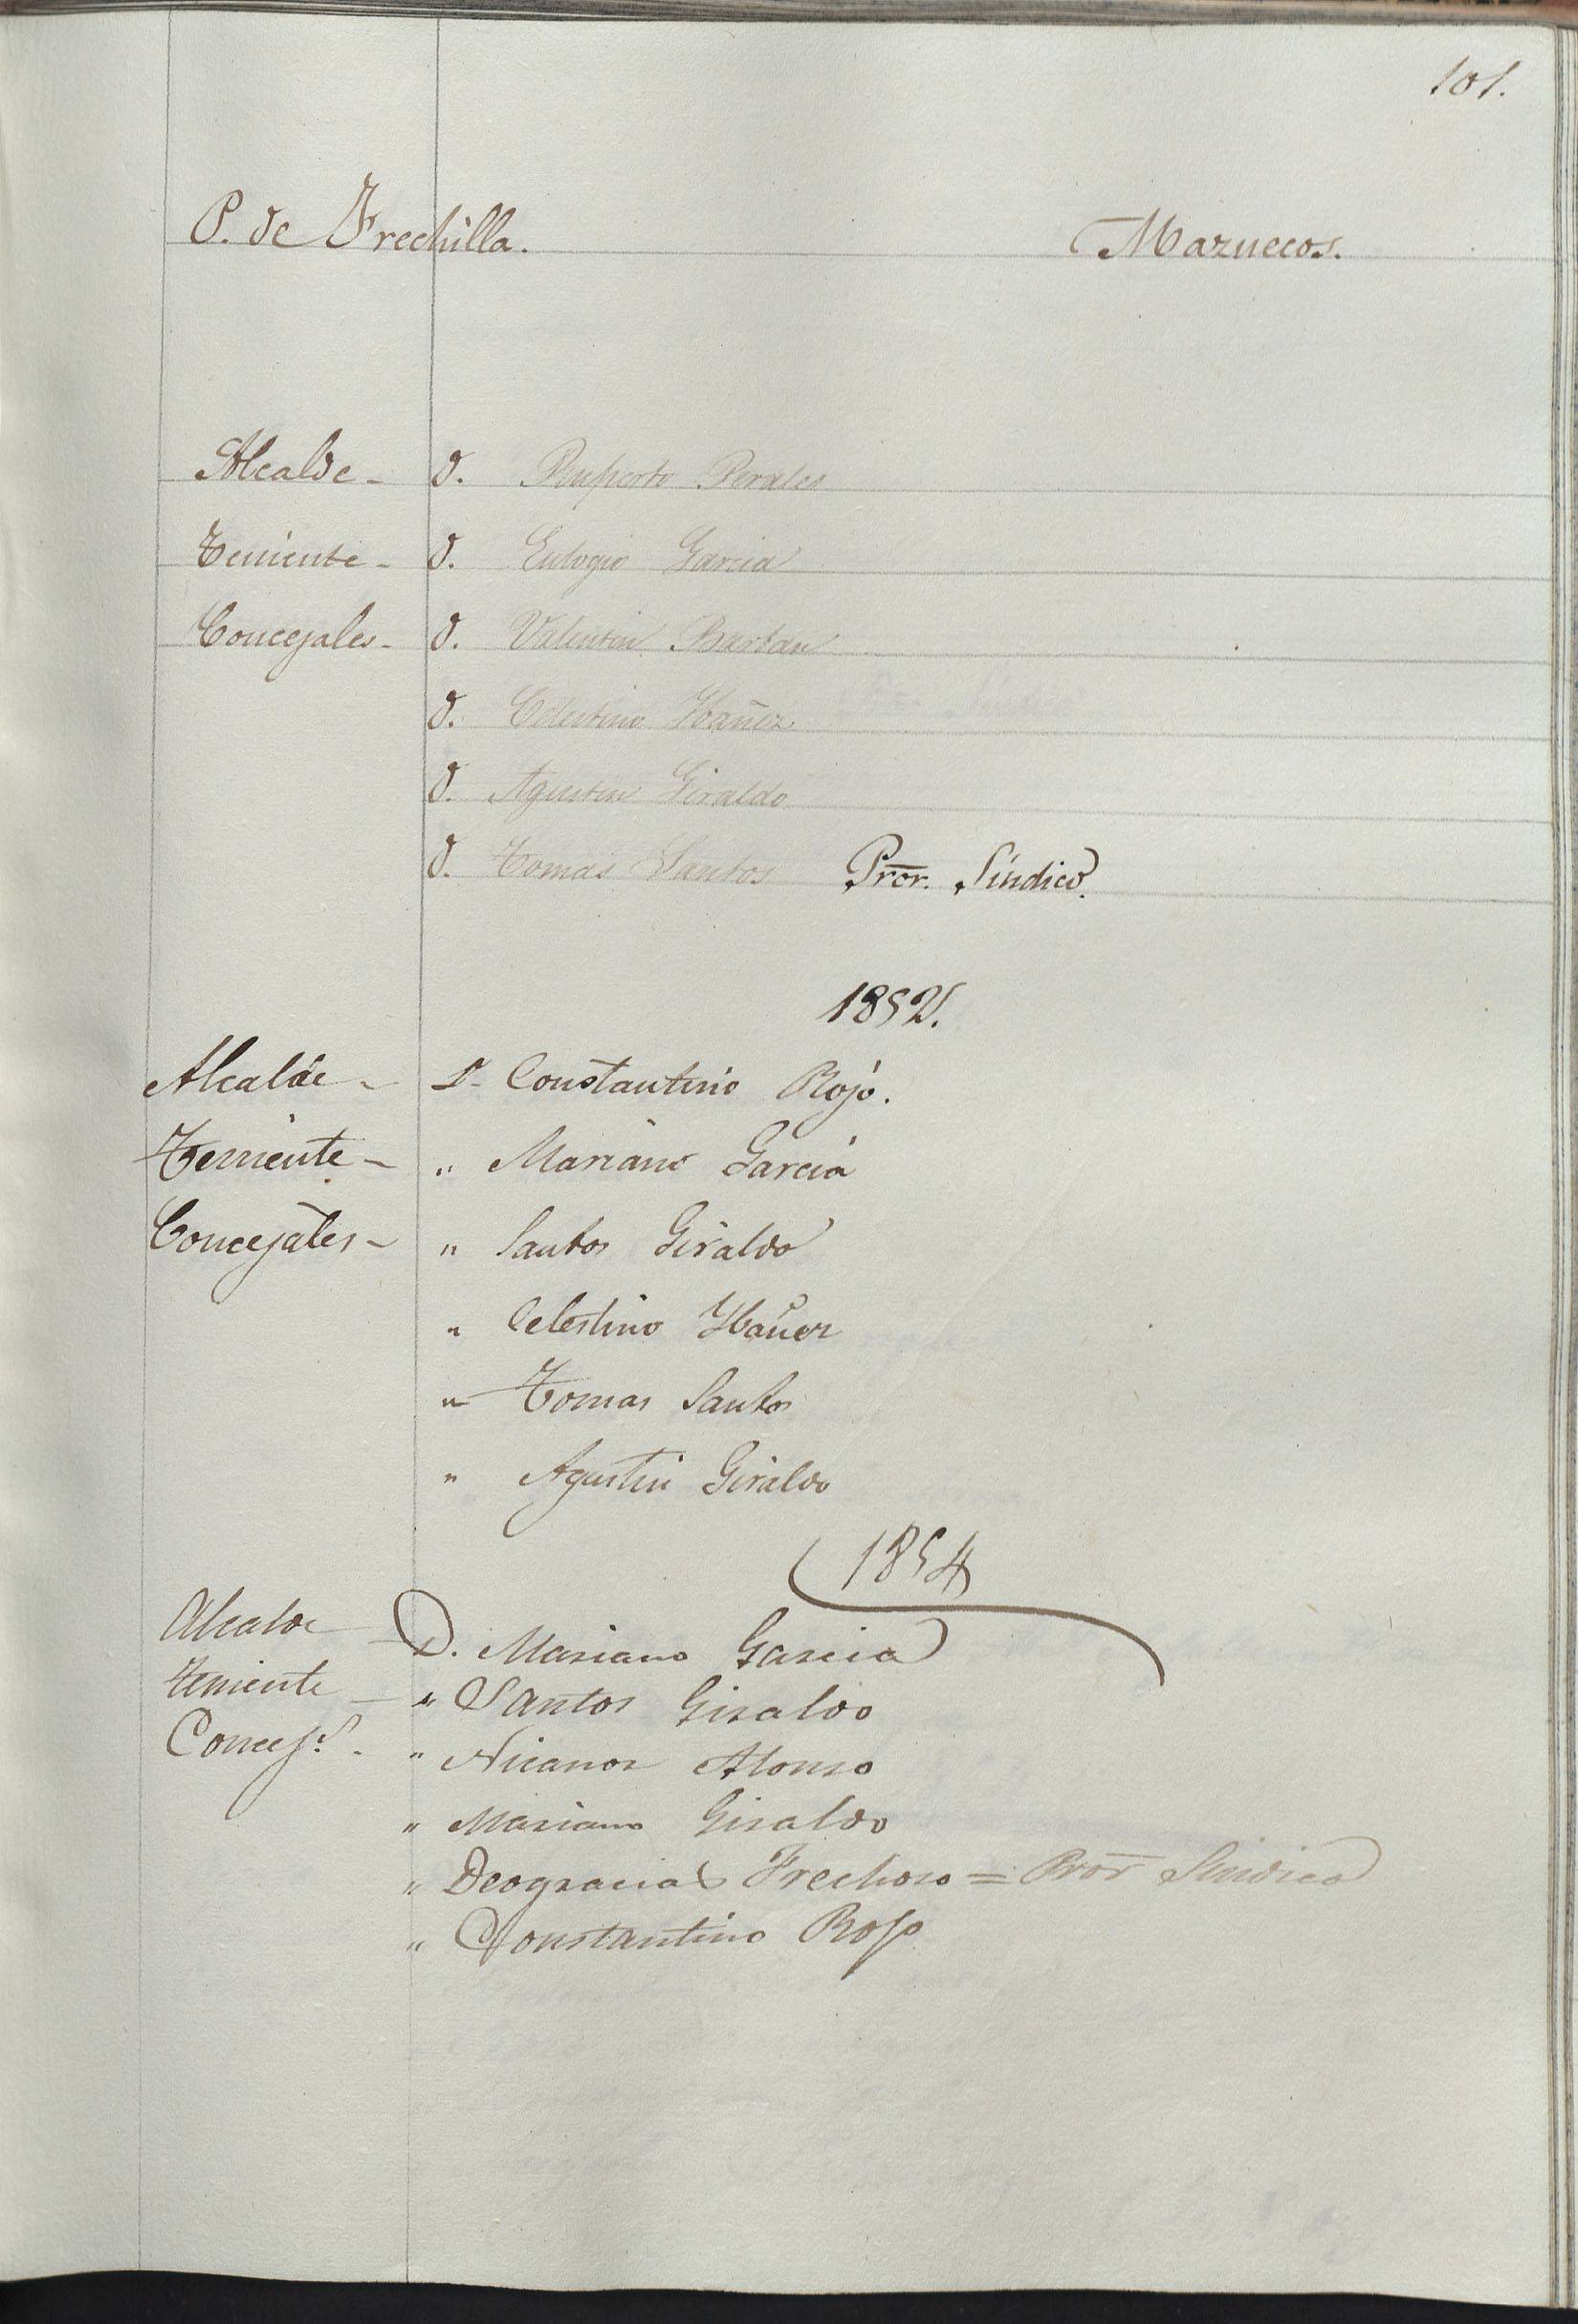 101.
P. de Frechilla. Mazuecos.
Alcalde - D. Ruperto Perales
Teniente - D. Eulogio Garcia
Concejales - D. Valentin
D. Celestino Ybañez
D. Agustin Giraldo
D. Tomas Santos Pror. Síndico.
1852.
Alcalde - D. Constantino Rojo.
Teniente - " Mariano Garcia
Concejales - " Santos Giraldo
" Celestino Ybañez
" Tomas Santos
" Agustin Giraldo
1854
Alcalde D. Mariano Garcia
teniente - " Santos Giraldo
Concej.s - " Nicanor Alonso
" Mariano Giraldo
" Deogracias Frechoso = Pror Sindico
" Constantino Rojo